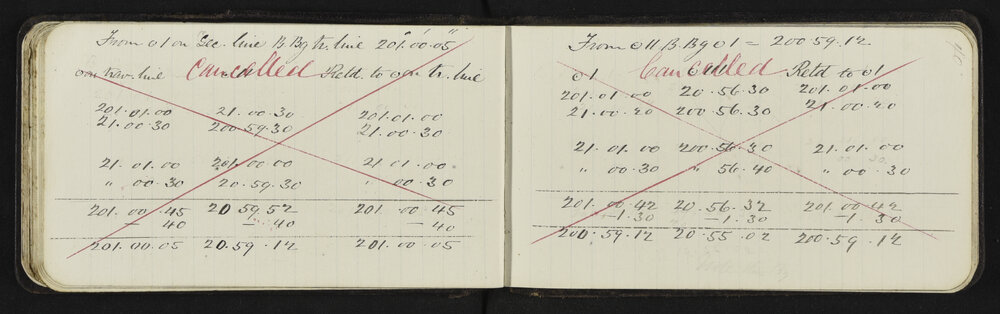 From 01 on Sec. line B. Bg tr. line 201°.00'.05"
on trav. line Cancelled Retd. to on tr. line
201.01.00 21.00.30 201.01.00
21.00.30 200.59.30 21.00.30
21.01.00 201.00.00 21.01.00
" 00.30 20.59.30 " 00.30
201.00.45 20.59.52 201.00.45
— 40 — 40 — 40
201.00.05 20.59.12 201.00.05
From 011 B. Bg 01 = 200.59.12
01 Cancelled Retd to 01
201.01.00 20.56.30 201.01.00
21.00.40 200.56.30 21.00.40
21.01.00 200.56.30 21.01.00
" 00.30 " 56.40 " 00.30
201.00.42 20.56.32 201.00.42
—1.30 —1.30 —1.30
200.59.12 20.55.02 200.59.12